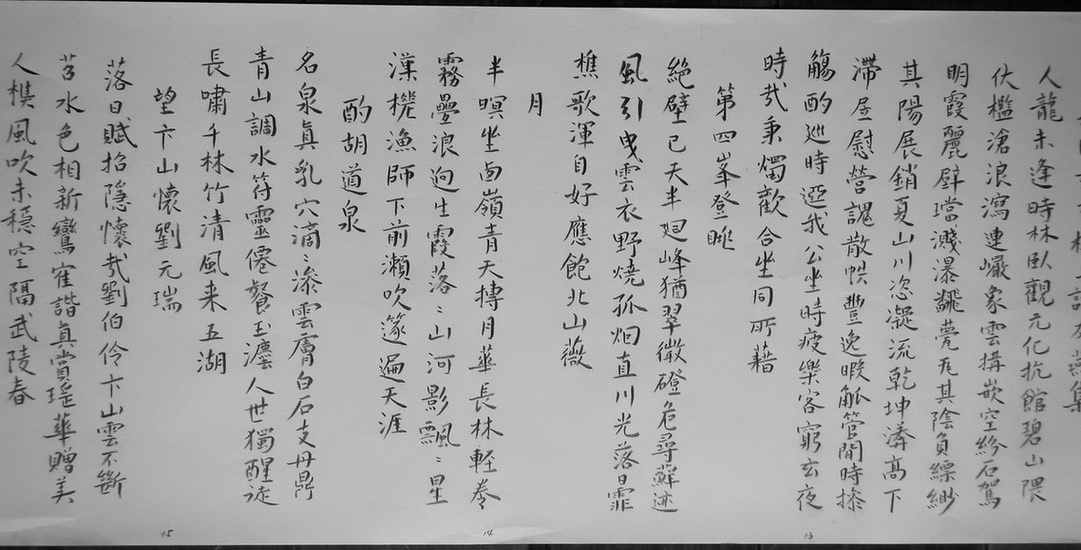 人龍未逢時林臥觀元化抗館碧山隈
伏檻滄浪瀉連巘象雲搆嵌空紛石駕
明霞麗壁璫濺瀑飜甍瓦其陰負縹緲
其陽展銷夏山川恣凝流乾坤溝高下
滯昼慰營䰟散帙豐逸暇觚管閒時捺
觴酌巡時迓我公坐時疲樂客窮玄夜
時哉秉燭歡合坐同所藉
第四峯登眺
絕壁已天半廻峰猶翠微磴危尋蘚迹
風引曳雲衣野燒孤烟直川光落日霏
樵歌渾自好應飽北山薇
月
半暝坐西嶺青天摶月華長林輕卷
霧疊浪迥生霞落〻山河影飄〻星
漢槎漁師下前瀨吹篴遍天涯
酌胡道泉
名泉真乳穴滴〻滲雲膚白石支丹鼎
青山調水符靈僊餐玉瀣人世獨醒徒
長嘯千林竹清風来五湖
望卞山懷劉元瑞
落日賦招隱懷哉劉伯伶卞山雲不斷
苕水色相新鸞隺諧真賞瑤華贈美
人樵風吹未穩空隔武陵春
13
14
15